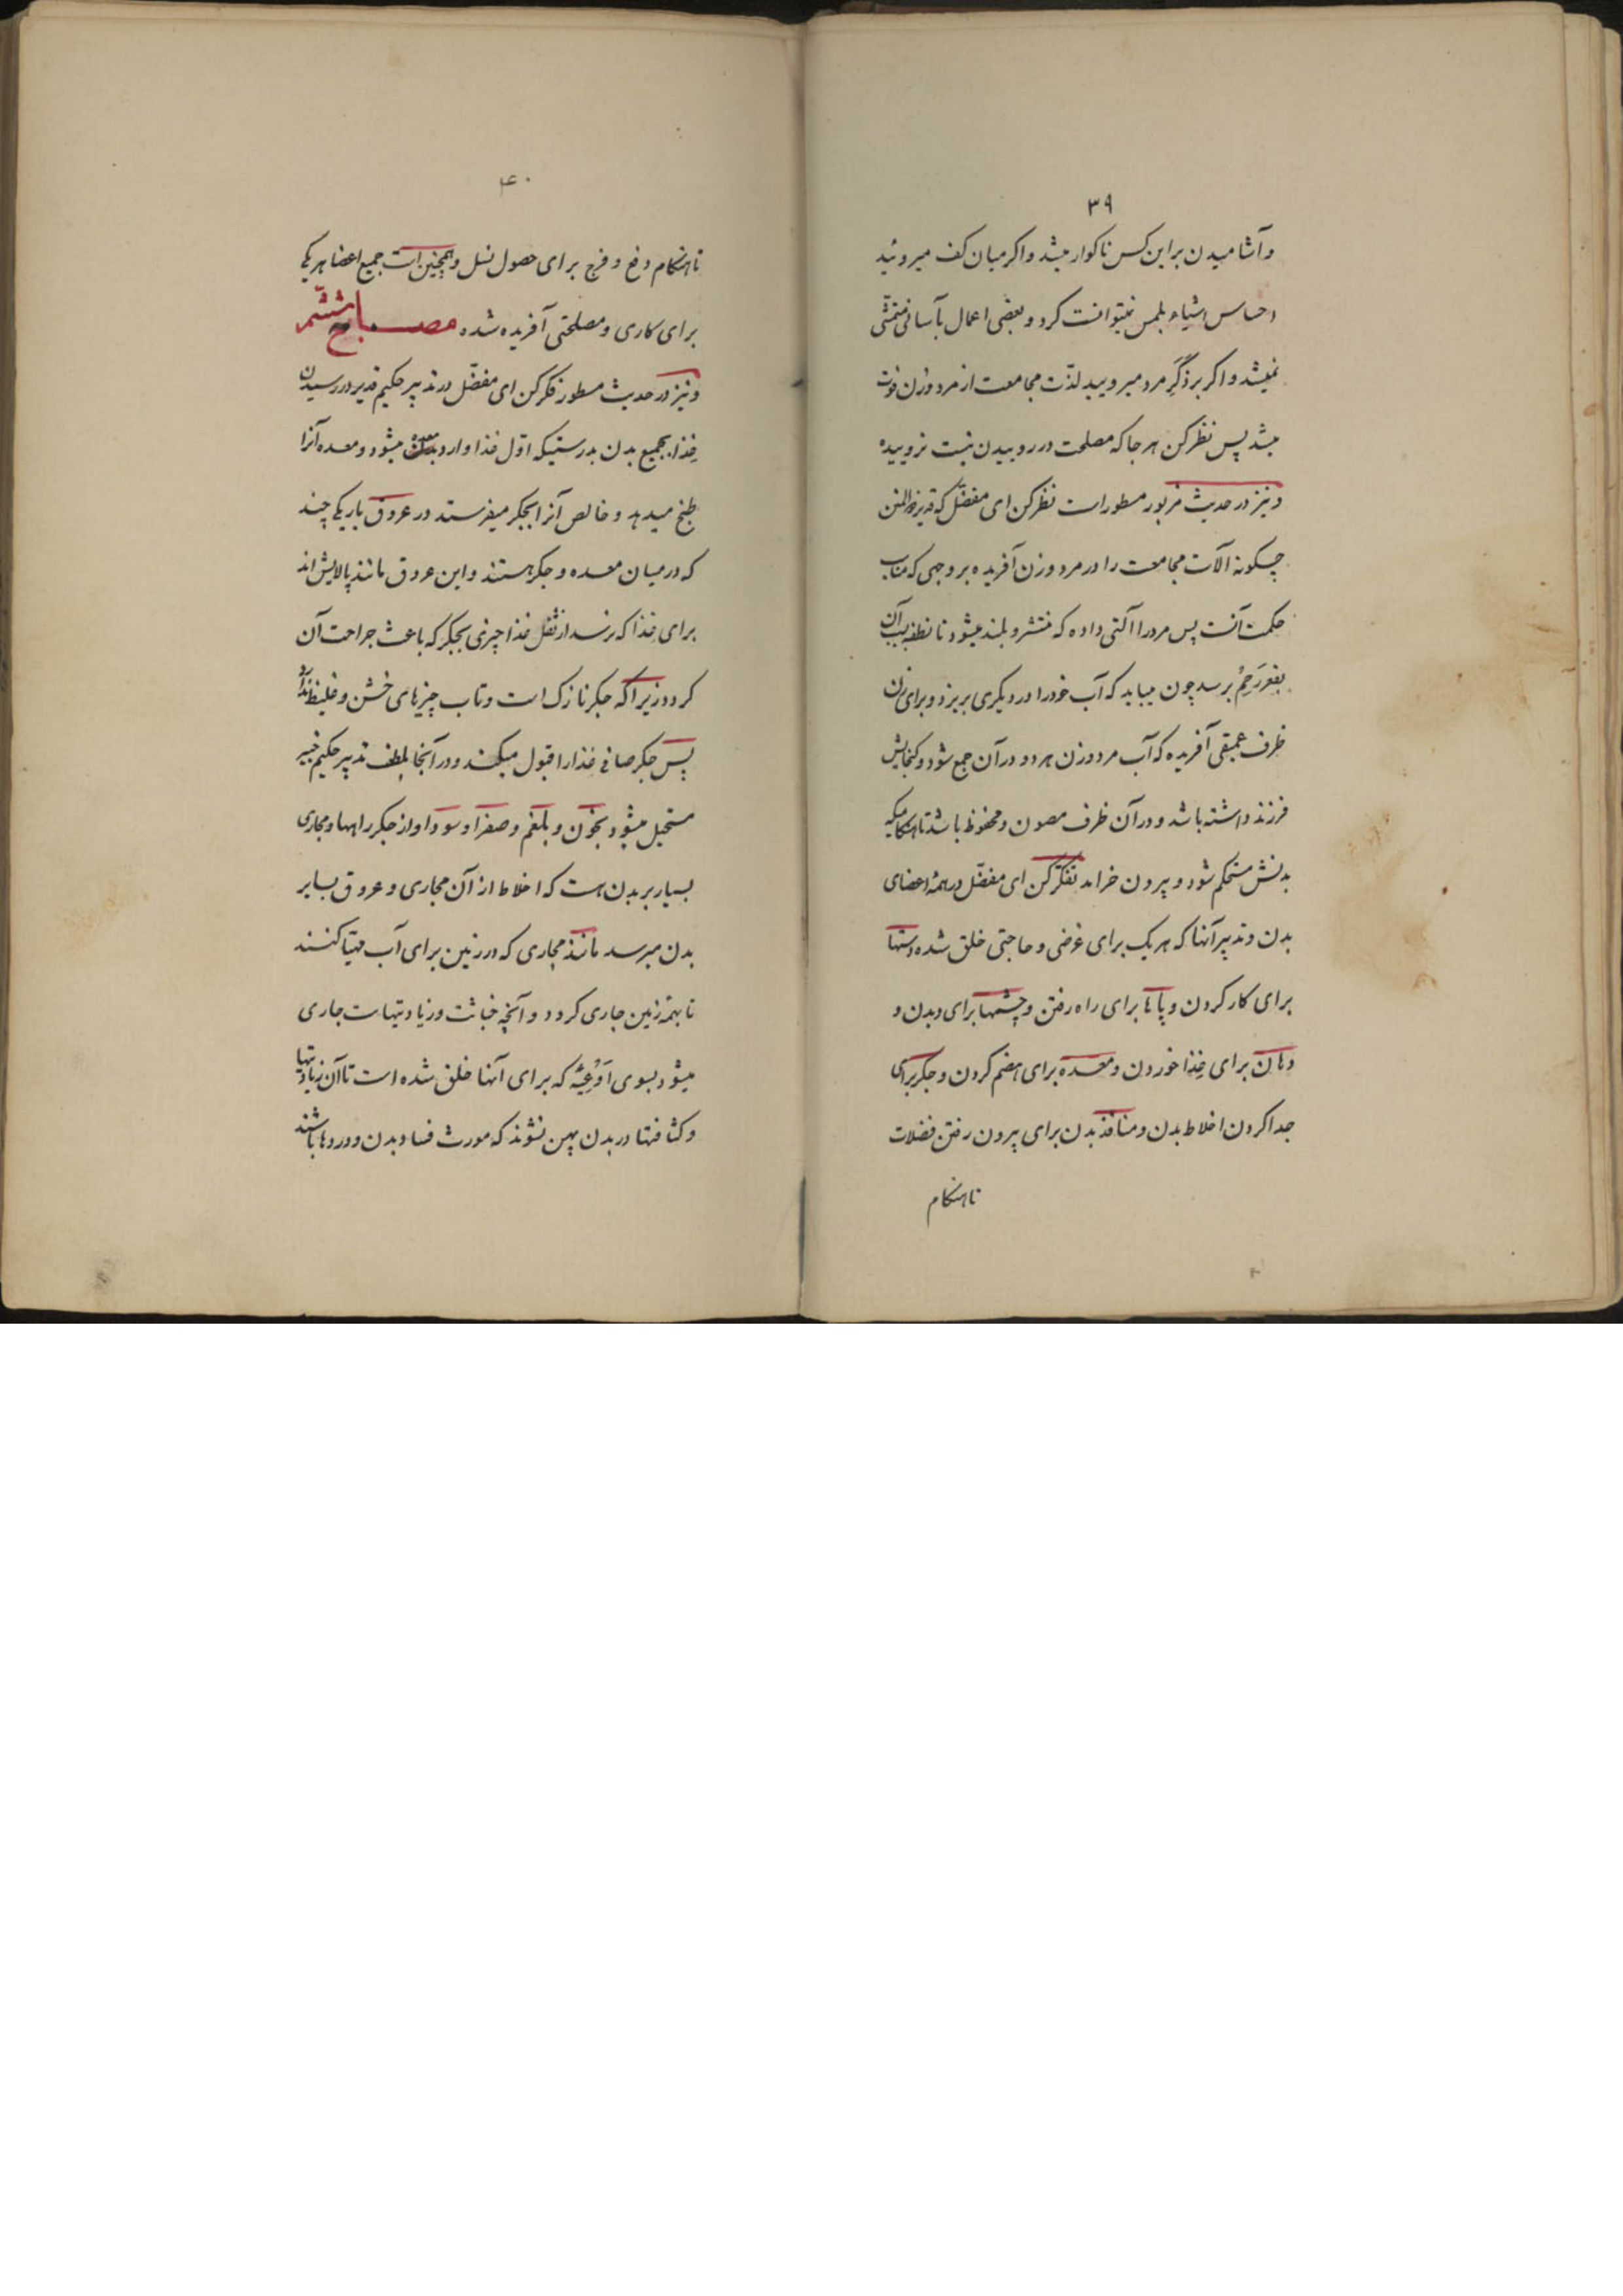 ۳۹
و آشامیدن بر این کس ناکوار میشد و اکر میان کف میروئید
احساس اشیاء بلمس نمیتوانست کرد و بعضی اعمال بآسانی متمشّی
نمیشد و اکر بر ذَکَرِ مرد میرویید لذّت مجامعت از مرد و زن فوت
میشد پس نظر کن هر جا که مصلحت در روییدن نیست نروییده
و نیز در حدیث مزبور مسطور است نظر کن ای مفضّل که قدیر ذوالمنن
چکونه آلات مجامعت را در مرد و زن آفریده بر وجهی که مناسب
حکمت آنست پس مرد را آلتی داده که منتشر و بلند میشود تا نطفه بسبب آن
بقعر رَحِمْ برسد چون میباید که آب خود را در دیگری بریزد و برای زن
ظرف عمیقی آفریده که آب مرد و زن هر دو در آن جمع شود و کنجایش
فرزند داشته باشد و در آن ظرف مصون و محفوظ باشد تا هنکامیکه
بدنش مستحکم شود و بیرون خرامد تفکّر کن ای مفضّل در همهٔ اعضای
بدن و تدبیر آنها که هر یک برای غرضی و حاجتی خلق شده دستها
برای کار کردن و پاها برای راه رفتن و چشمها برای دیدن و
دهان برای غِذا خوردن و معده برای هضم کردن و جکر برای
جدا کردن اخلاط بدن و منافذ بدن برای بیرون رفتن فضلات
تا هنکام
۴۰
تا هنکام دفع و فرج برای حصول نسل و همچنین است جمیع اعضا هر یکی
برای کاری و مصلحتی آفریده شده مصباح ششم
و نیز در حدیث مسطور فکر کن ای مفضّل در تدبیر حکیم قدیر در رسیدن
غِذا بجمیع بدن بدرستیکه اوّل غذا وارد معده میشود و معده آنرا
طبخ میدهد و خالص آنرا بجکر میفرستد در عروق باریکی چند
که در میان معده و جکر هستند و این عروق مانند پالایش‌اند
برای غِذا که نرسد از ثفل غذا چیزی بجکر که باعث جراحت آن
کردد زیرا که جکر نازک است و تاب چیزهای خشن و غلیظ ندارد
پس جکر صافی غذا را قبول میکند و در آنجا بلطف تدبیر حکیم خبیر
مستحیل میشود بخون و بلغم و صفرا و سودا و از جکر راهها و مجاری
بسیار بر بدن هست که اخلاط از آن مجاری و عروق بسایر
بدن میرسد مانند مجاری که در زمین برای آب مهیّا کنند
تا بهمهٔ زمین جاری کردد و آنچه خباثت و زیادتیهاست جاری
میشود بسوی اَوْعِیَهٔ که برای آنها خلق شده است تا آن زیادتیها
و کثافتها در بدن پهن نشوند که مورث فساد بدن و دردها باشند